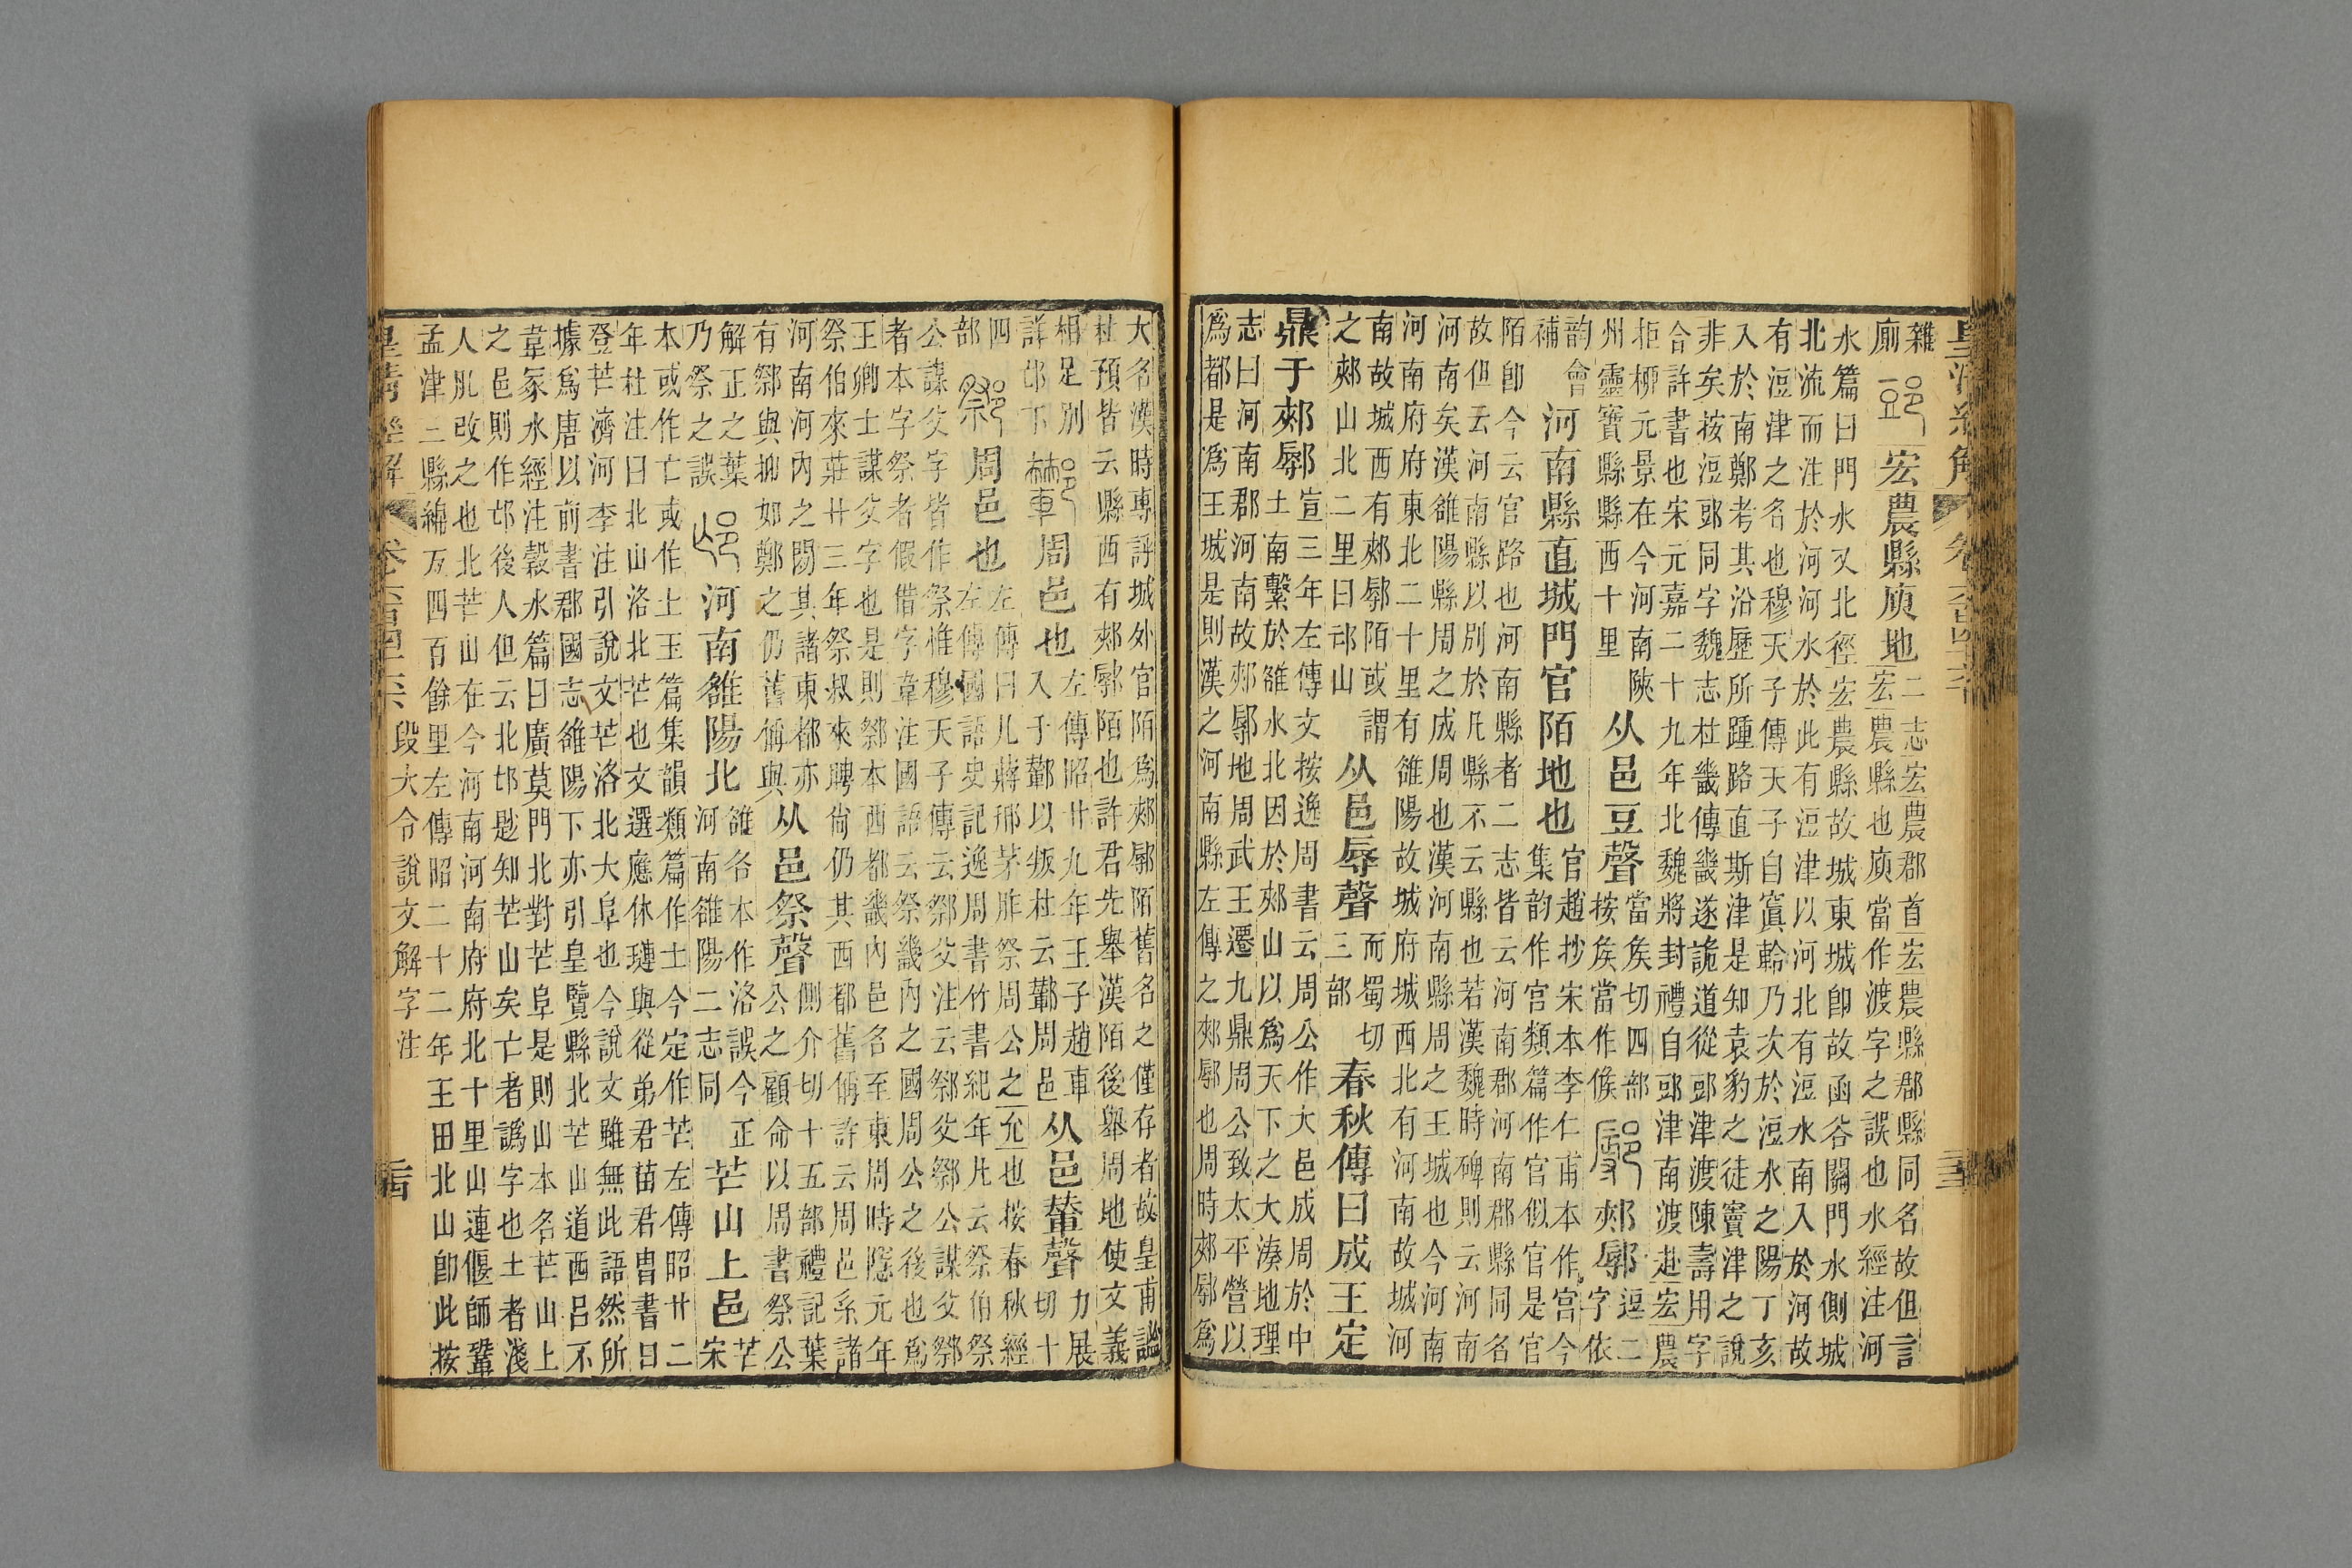 皇清經解
雜
廁
宏農縣庾地
二志宏農郡首宏農縣郡縣同名故但言
宏農縣也庾當作渡字之誤也水經注河
水篇曰門水又北徑宏農縣故城東城卽故函谷關門水側城
北流而注於河河水於此有浢津以河北有浢水南入於河故
有浢津之名也穆天子傳天子自窴軨乃次於浢水之陽丁亥
入於南鄭考其沿歷所踵路直斯津是知袁豹之徒竇津之說
非矣按浢郖同字魏志杜畿傳畿遂詭道從郖津渡陳壽用字
合許書也宋元嘉二十九年北魏將封禮自郖津南渡赴宏農
柜桞元景在今河南陝
州靈寶縣縣西十里
从邑豆聲
當矦切四部
按矦當作候
郟鄏
逗二
字依
韵會
補
河南縣直城門官陌地也
官趙抄宋本李仁甫本作宮今
集韵作官類篇作官似官是官
陌卽今云官路也河南縣者二志皆云河南郡河南郡縣同名
故但云河南縣以別於凡縣不云縣也若漢魏時碑則云河南
河南矣漢雒陽縣周之成周也漢河南縣周之王城也今河南
河南府府東北二十里有雒陽故城府城西北有河南故城河
南故城西有郟鄏陌或謂
之郟山北二里曰邙山
从邑辱聲
而蜀切
三部
春秋傳曰成王定
鼎于郟鄏
宣三年左傳文按逸周書云周公作大邑成周於中
土南繫於雒水北因於郟山以爲天下之大湊地理
志曰河南郡河南故郟鄏地周武王遷九鼎周公致太平營以
爲都是爲王城是則漢之河南縣左傳之郟鄏也周時郟鄏爲
大名漢時專評城外官陌爲郟鄏陌舊名之僅存者故皇甫謐
杜預皆云縣西有郟鄏陌也許君先舉漢陌後舉周地使文義
相足別
詳邙下
周邑也
左傳昭廿九年王子趙車
入于鄻以叛杜云鄻周邑
从邑輦聲
力展
切十
四
部
周邑也
左傳曰凡蔣邢茅胙祭周公之允也按春秋經
左傳國語史記逸周書竹書紀年凡云祭伯祭
公謀父字皆作祭惟穆天子傳云鄒父注云鄒父鄒公謀父鄒
者本字祭者假借字韋注國語云祭畿內之國周公之後也爲
王卿士謀父字也是則鄒本西都畿內邑名至東周時隱元年
祭伯來莊廿三年祭叔來聘尙仍其西都舊偁許云周邑系諸
河南河內之閒其諸東都亦
有鄒與抑如鄭之仍舊偁與
从邑祭聲
側介切十五部禮記葉
公之顧命以周書祭公
解正之葉
乃祭之誤
河南雒陽北
雒各本作洛誤今正
河南雒陽二志同
芒山上邑
芒
宋
本或作亡或作土玉篇集韻類篇作士今定作芒左傳昭廿二
年杜注曰北山洛北芒也文選應休璉與從弟君苗君冑書曰
登芒濟河李注引說文芒洛北大阜也今說文雖無此語然所
據爲唐以前書郡國志雒陽下亦引皇覽縣北芒山道西呂不
韋冢水經注穀水篇曰廣莫門北對芒阜是則山本名芒山上
之邑則作邙後人但云北邙尟知芒山矣亡者譌字也土者淺
人肊改之也北芒山在今河南河南府府北十里山連偃師鞏
孟津三縣綿亙四百餘里左傳昭二十二年王田北山卽此按
皇清經解
卷六百四十六
段大令說文解字注